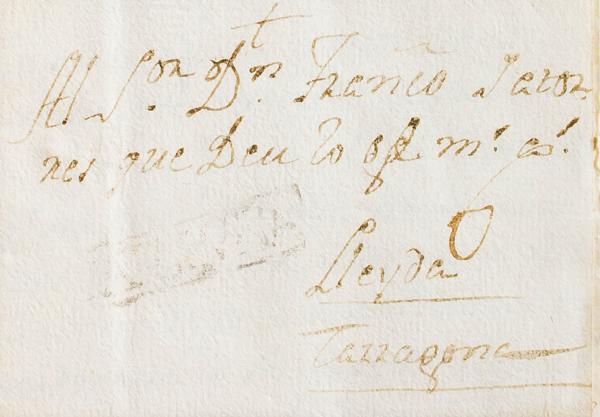 †
Al S.or D.n Fran.co Jacor
nes que Deu lo gde m.s a.s
Lleyda
Tarragona